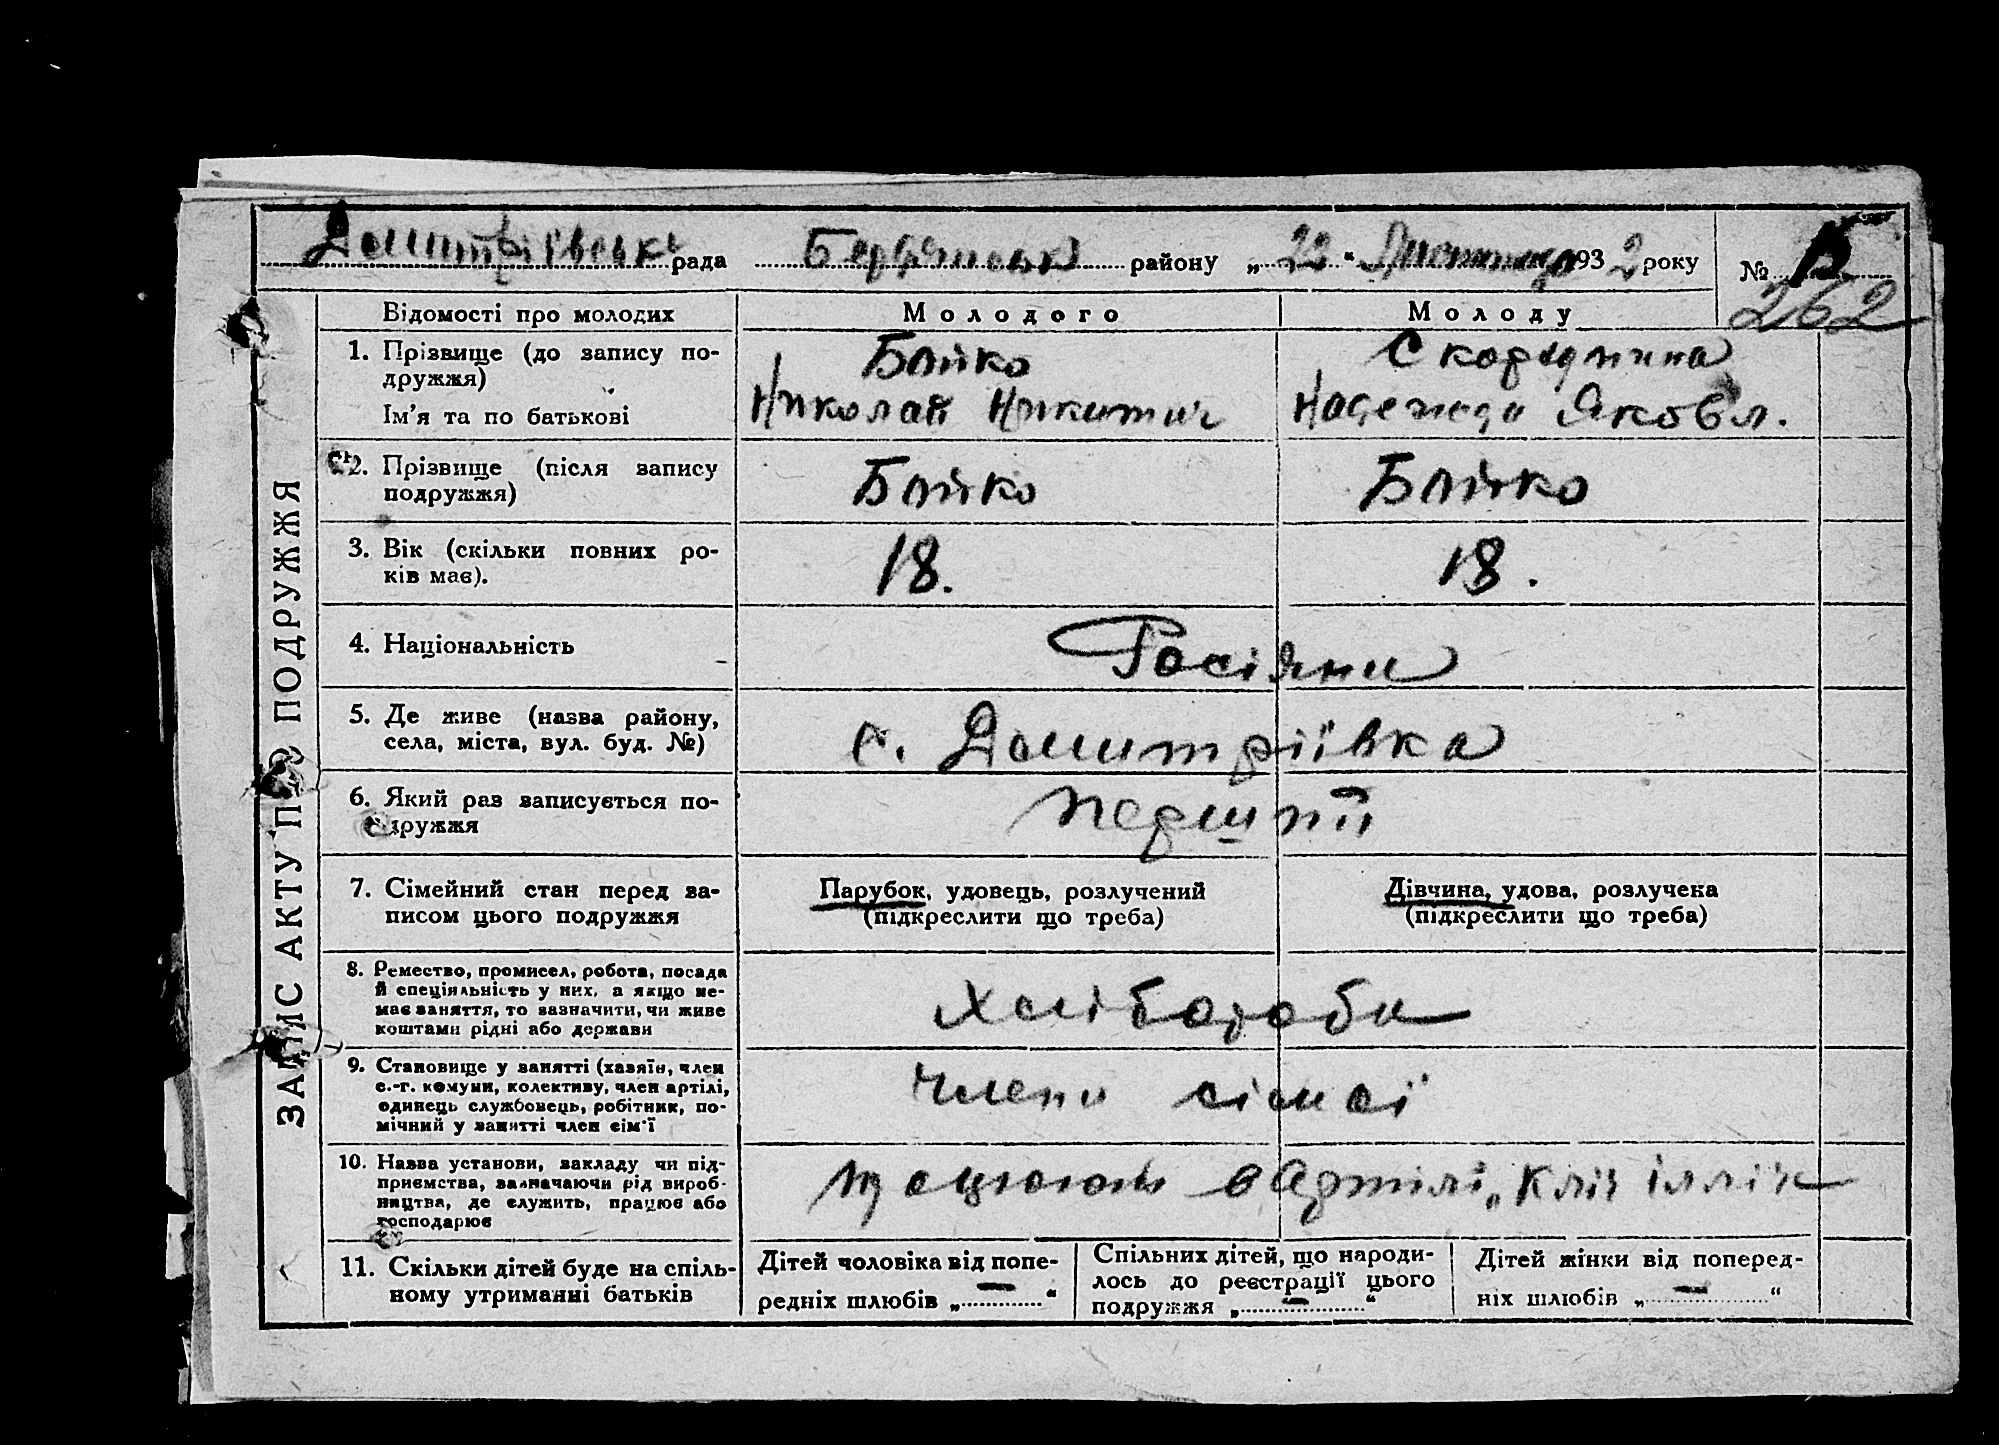 Дмитріївськ рада Бердянськ району „22“ Листопада 1932 року № 15
262
ЗАПИС АКТУ ПРО ПОДРУЖЖЯ
Відомості про молодих Молодого Молоду
1. Прізвище (до запису по-
дружжя)
Бойко
Ім'я та по батькові
Николай Никитич Надежда Яковл.
2. Прізвище (після запису
подружжя)
Бойко Бойко
3. Вік (скільки повних ро-
ків має).
18. 18.
4. Національність
Росіяни
5. Де живе (назва району,
села, міста, вул. буд. №)
с. Дмитріївка
6. Який раз записується по-
дружжя
перший
7. Сімейний стан перед за-
писом цього подружжя
Парубок, удовець, розлучений
(підкреслити що треба)
Дівчина, удова, розлучена
(підкреслити що треба)
8. Ремество, промисел, робота, посада
й спеціяльність у них, а якщо не-
має заняття, то зазначити, чи живе
коштами рідні або держави
Хлібороби
9. Становище у занятті (хазяїн, член
с.-г. комуни, колективу, член артілі,
одинець службовець, робітник, по-
мічний у занятті член сім'ї
члени сімєї
10. Назва установи, закладу чи під-
приємства, зазначаючи рід вироб-
ництва, де служить, працює або
господарює
працюють в Артілі
11. Скільки дітей буде на спіль-
ному утриманні батьків
Дітей чоловіка від попе-
редніх шлюбів „—“
Спільних дітей, що народи-
лось до реєстрації цього
подружжя „—“
Дітей жінки від поперед-
ніх шлюбів „—“